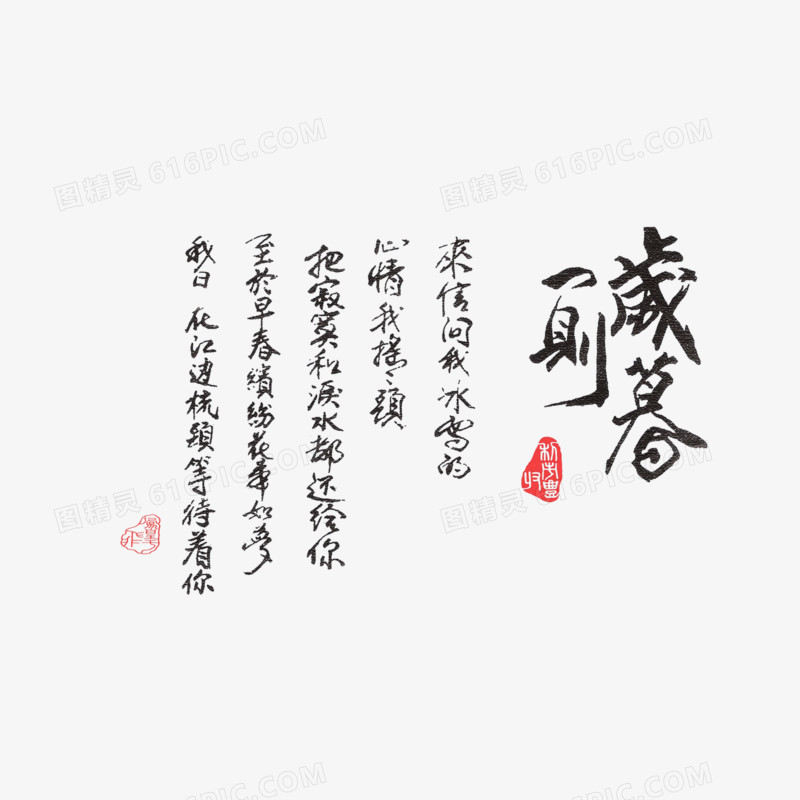 歲暮
一則
來信問我冰雪的
心情我搖々頭
把寂寞和淚水都还给你
至於早春繽紛花事如夢
我日 在江边梳頭等待着你
图精灵 616PIC.COM
图精灵 616PIC.COM
图精灵 616PIC.COM
图精灵 616PIC.COM
图精灵 616PIC.COM
图精灵 616PIC.COM